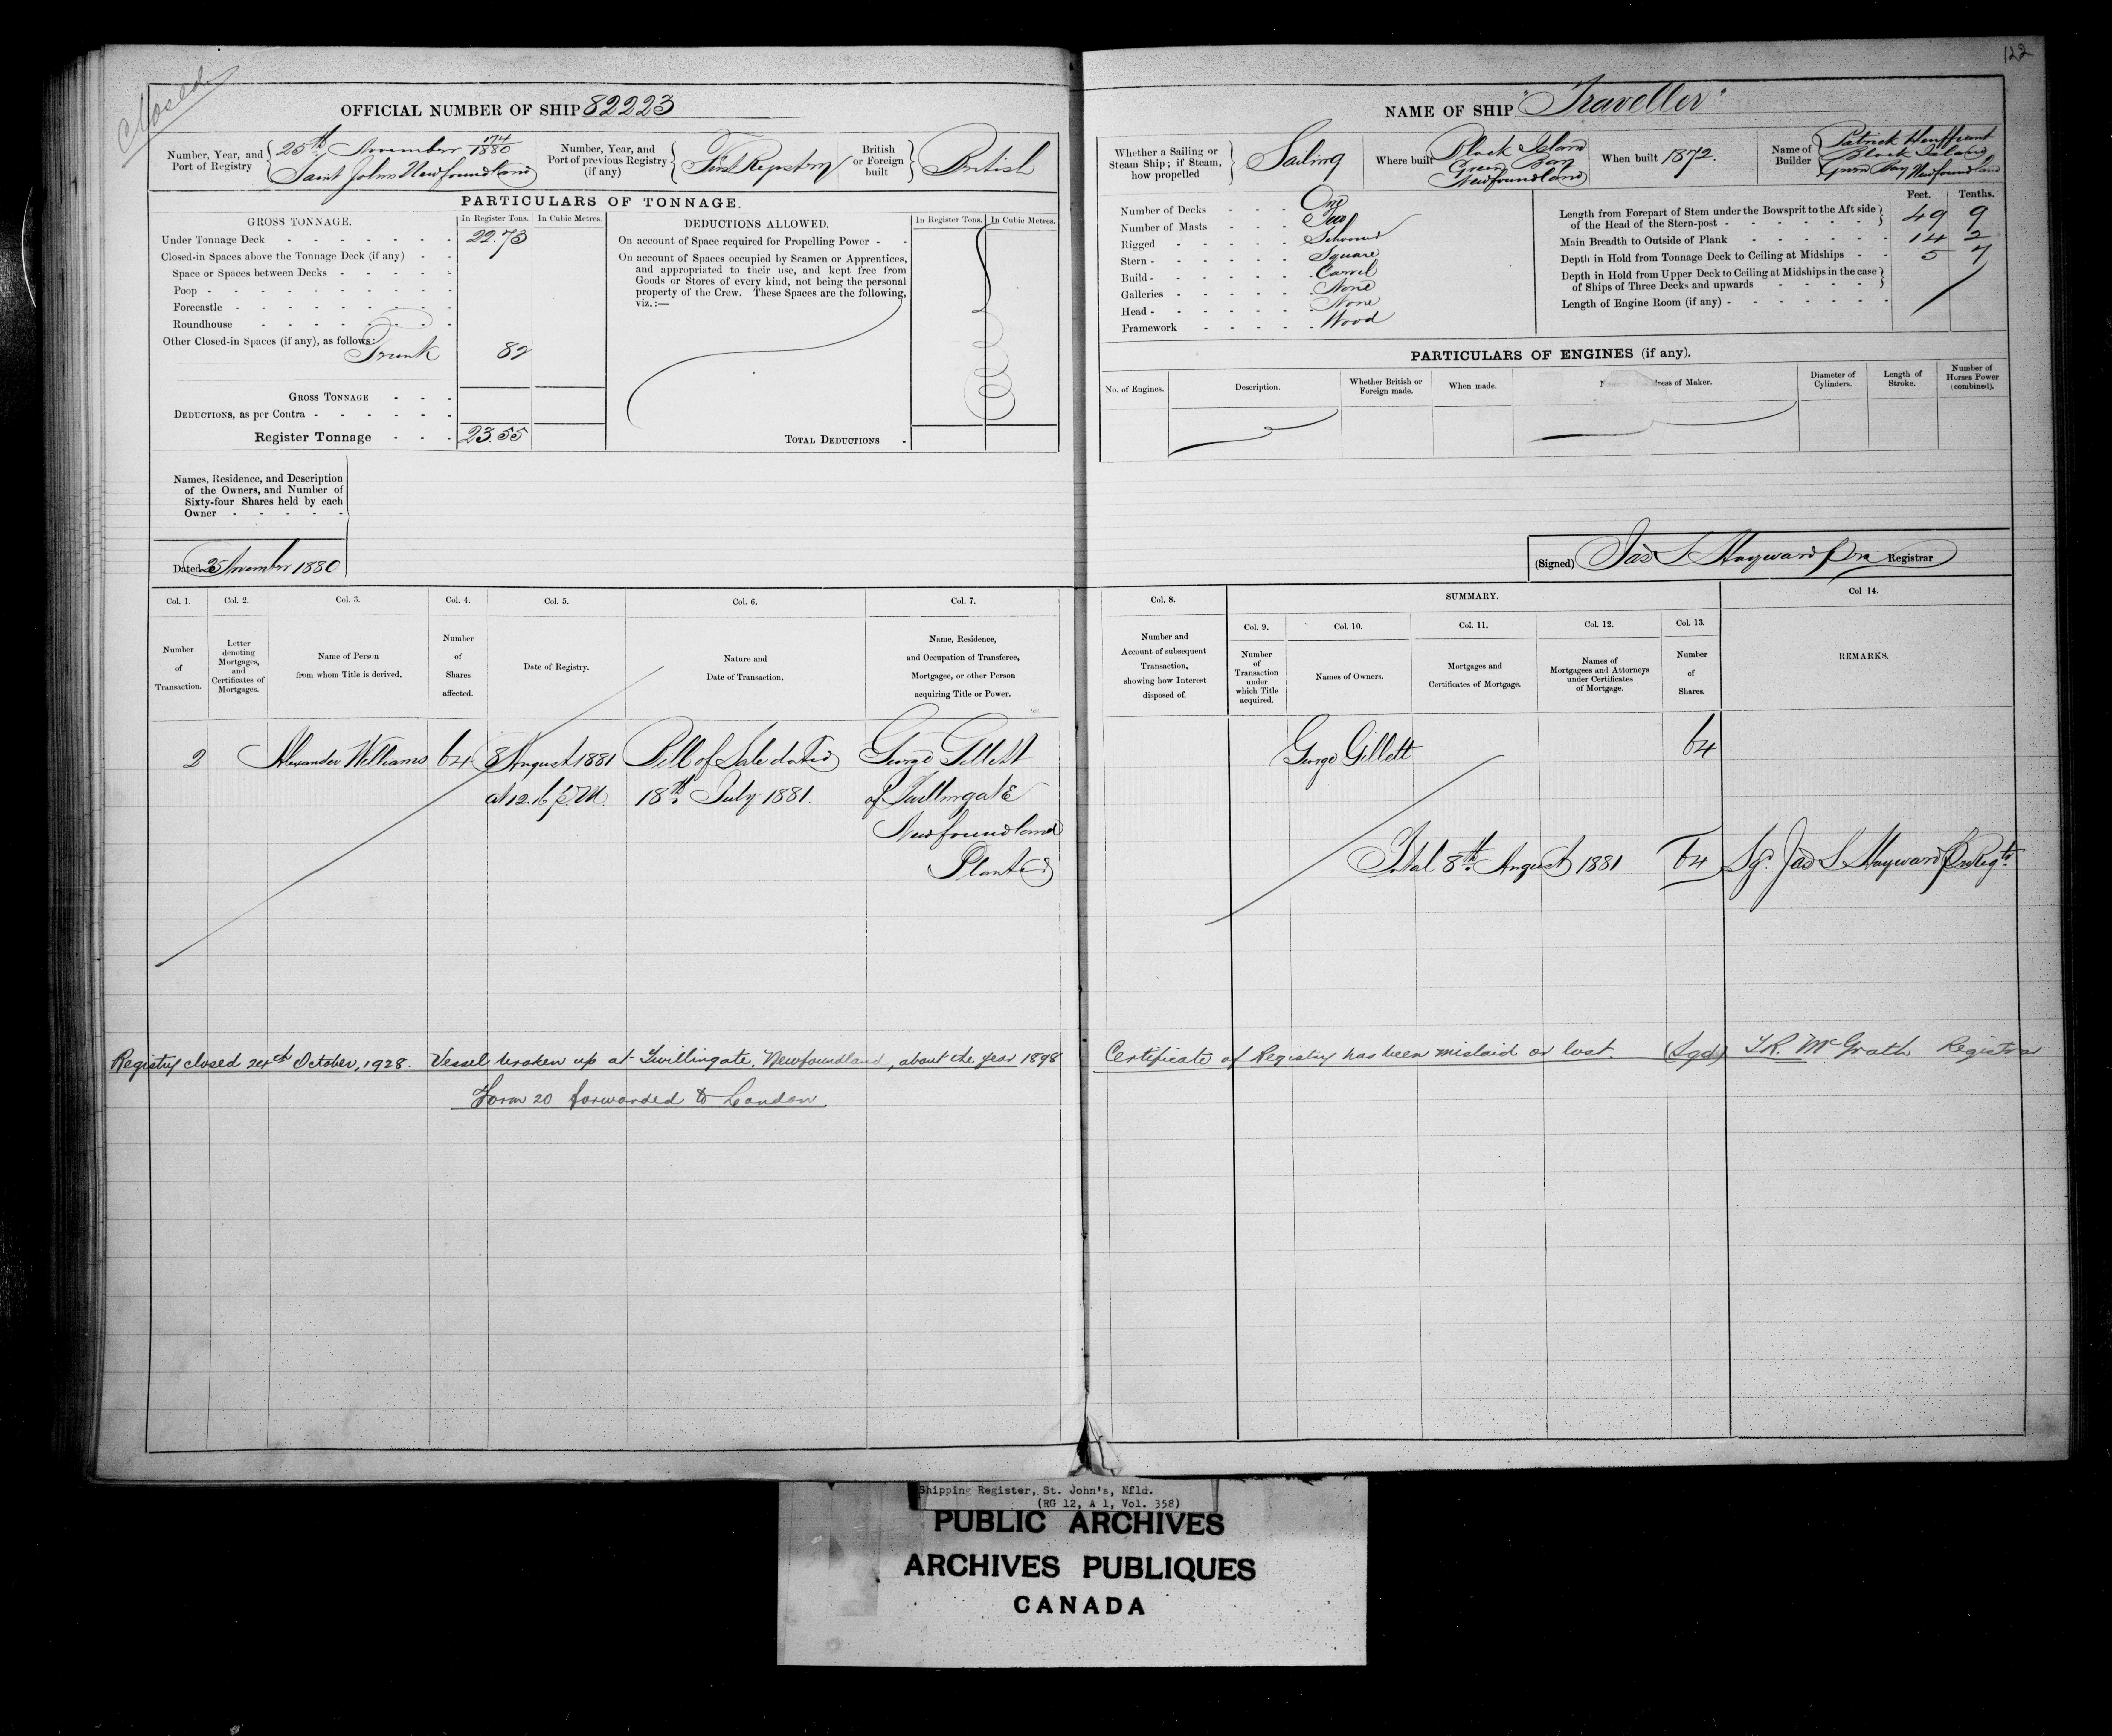 122
Closed
OFFICIAL NUMBER OF SHIP 82223
Number, Year, and Port of Registry
25th November 174/1880
Saint Johns Newfoundland
Number, Year, and Port of previous Registry (if any)
First Registry
British or Foreign built
British
PARTICULARS OF TONNAGE.
GROSS TONNAGE.
In Register Tons.
In Cubic Metres.
Under Tonnage Deck 22.73
Closed-in Spaces above the Tonnage Deck (if any)
Space or Spaces between Decks
Poop
Forecastle
Roundhouse
Other Closed-in Spaces (if any), as follows:
Trunk 82
GROSS TONNAGE
DEDUCTIONS, as per Contra
Register Tonnage 23.55
DEDUCTIONS ALLOWED.
In Register Tons.
In Cubic Metres.
On account of Space required for Propelling Power
On account of Spaces occupied by Seamen or Apprentices,
and appropriated to their use, and kept free from
Goods or Stores of every kind, not being the personal
property of the Crew. These Spaces are the following,
viz.:—
TOTAL DEDUCTIONS
Names, Residence, and Description
of the Owners, and Number of
Sixty-four Shares held by each
Owner
Dated 25 November 1880
NAME OF SHIP "Traveller"
Whether a Sailing or Steam Ship; if Steam, how propelled
Sailing
Where built
Black Island
Green Bay
Newfoundland
When built 1872.
Name of Builder
Patrick
Black Island
Green Bay Newfoundland
Number of Decks One
Number of Masts Two
Rigged Schooner
Stern Square
Build Carvel
Galleries None
Head None
Framework Wood
Feet. Tenths.
Length from Forepart of Stem under the Bowsprit to the Aft side
of the Head of the Stern-post 49 9
Main Breadth to Outside of Plank 14 2
Depth in Hold from Tonnage Deck to Ceiling at Midships 5 7
Depth in Hold from Upper Deck to Ceiling at Midships in the case
of Ships of Three Decks and upwards
Length of Engine Room (if any)
PARTICULARS OF ENGINES (if any).
No. of Engines.
Description.
Whether British or Foreign made.
When made.
of Maker.
Diameter of Cylinders.
Length of Stroke.
Number of Horses Power (combined).
(Signed) Jas S Hayward Registrar
Col. 1. Col. 2. Col. 3. Col. 4. Col. 5. Col. 6. Col. 7.
Number of Transaction.
Letter denoting Mortgages, and Certificates of Mortgages.
Name of Person from whom Title is derived.
Number of Shares affected.
Date of Registry.
Nature and Date of Transaction.
Name, Residence, and Occupation of Transferee, Mortgagee, or other Person acquiring Title or Power.
Col. 8. SUMMARY. Col 14.
Col. 9. Col. 10. Col. 11. Col. 12. Col. 13.
Number and Account of subsequent Transaction, showing how Interest disposed of.
Number of Transaction under which Title acquired.
Names of Owners.
Mortgages and Certificates of Mortgage.
Names of Mortgagees and Attorneys under Certificates of Mortgage.
Number of Shares.
REMARKS.
2 Alexander Williams 64 8 August 1881 Bill of Sale dated George Gillett
at 12.16 P.M. 18th July 1881. of Twillingate
Newfoundland
Planter
George Gillett 64
Total 8th August 1881 64 Sg. Jas S Hayward
Registry closed 24th October, 1928. Vessel broken up at Twillingate, Newfoundland, about the year 1898
Certificate of Registry has been mislaid or lost. (Sgd) McGrath Registrar
Form 20 forwarded to London.
Shipping Register, St. John's, Nfld.
(RG 12, A 1, Vol. 358)
PUBLIC ARCHIVES
ARCHIVES PUBLIQUES
CANADA